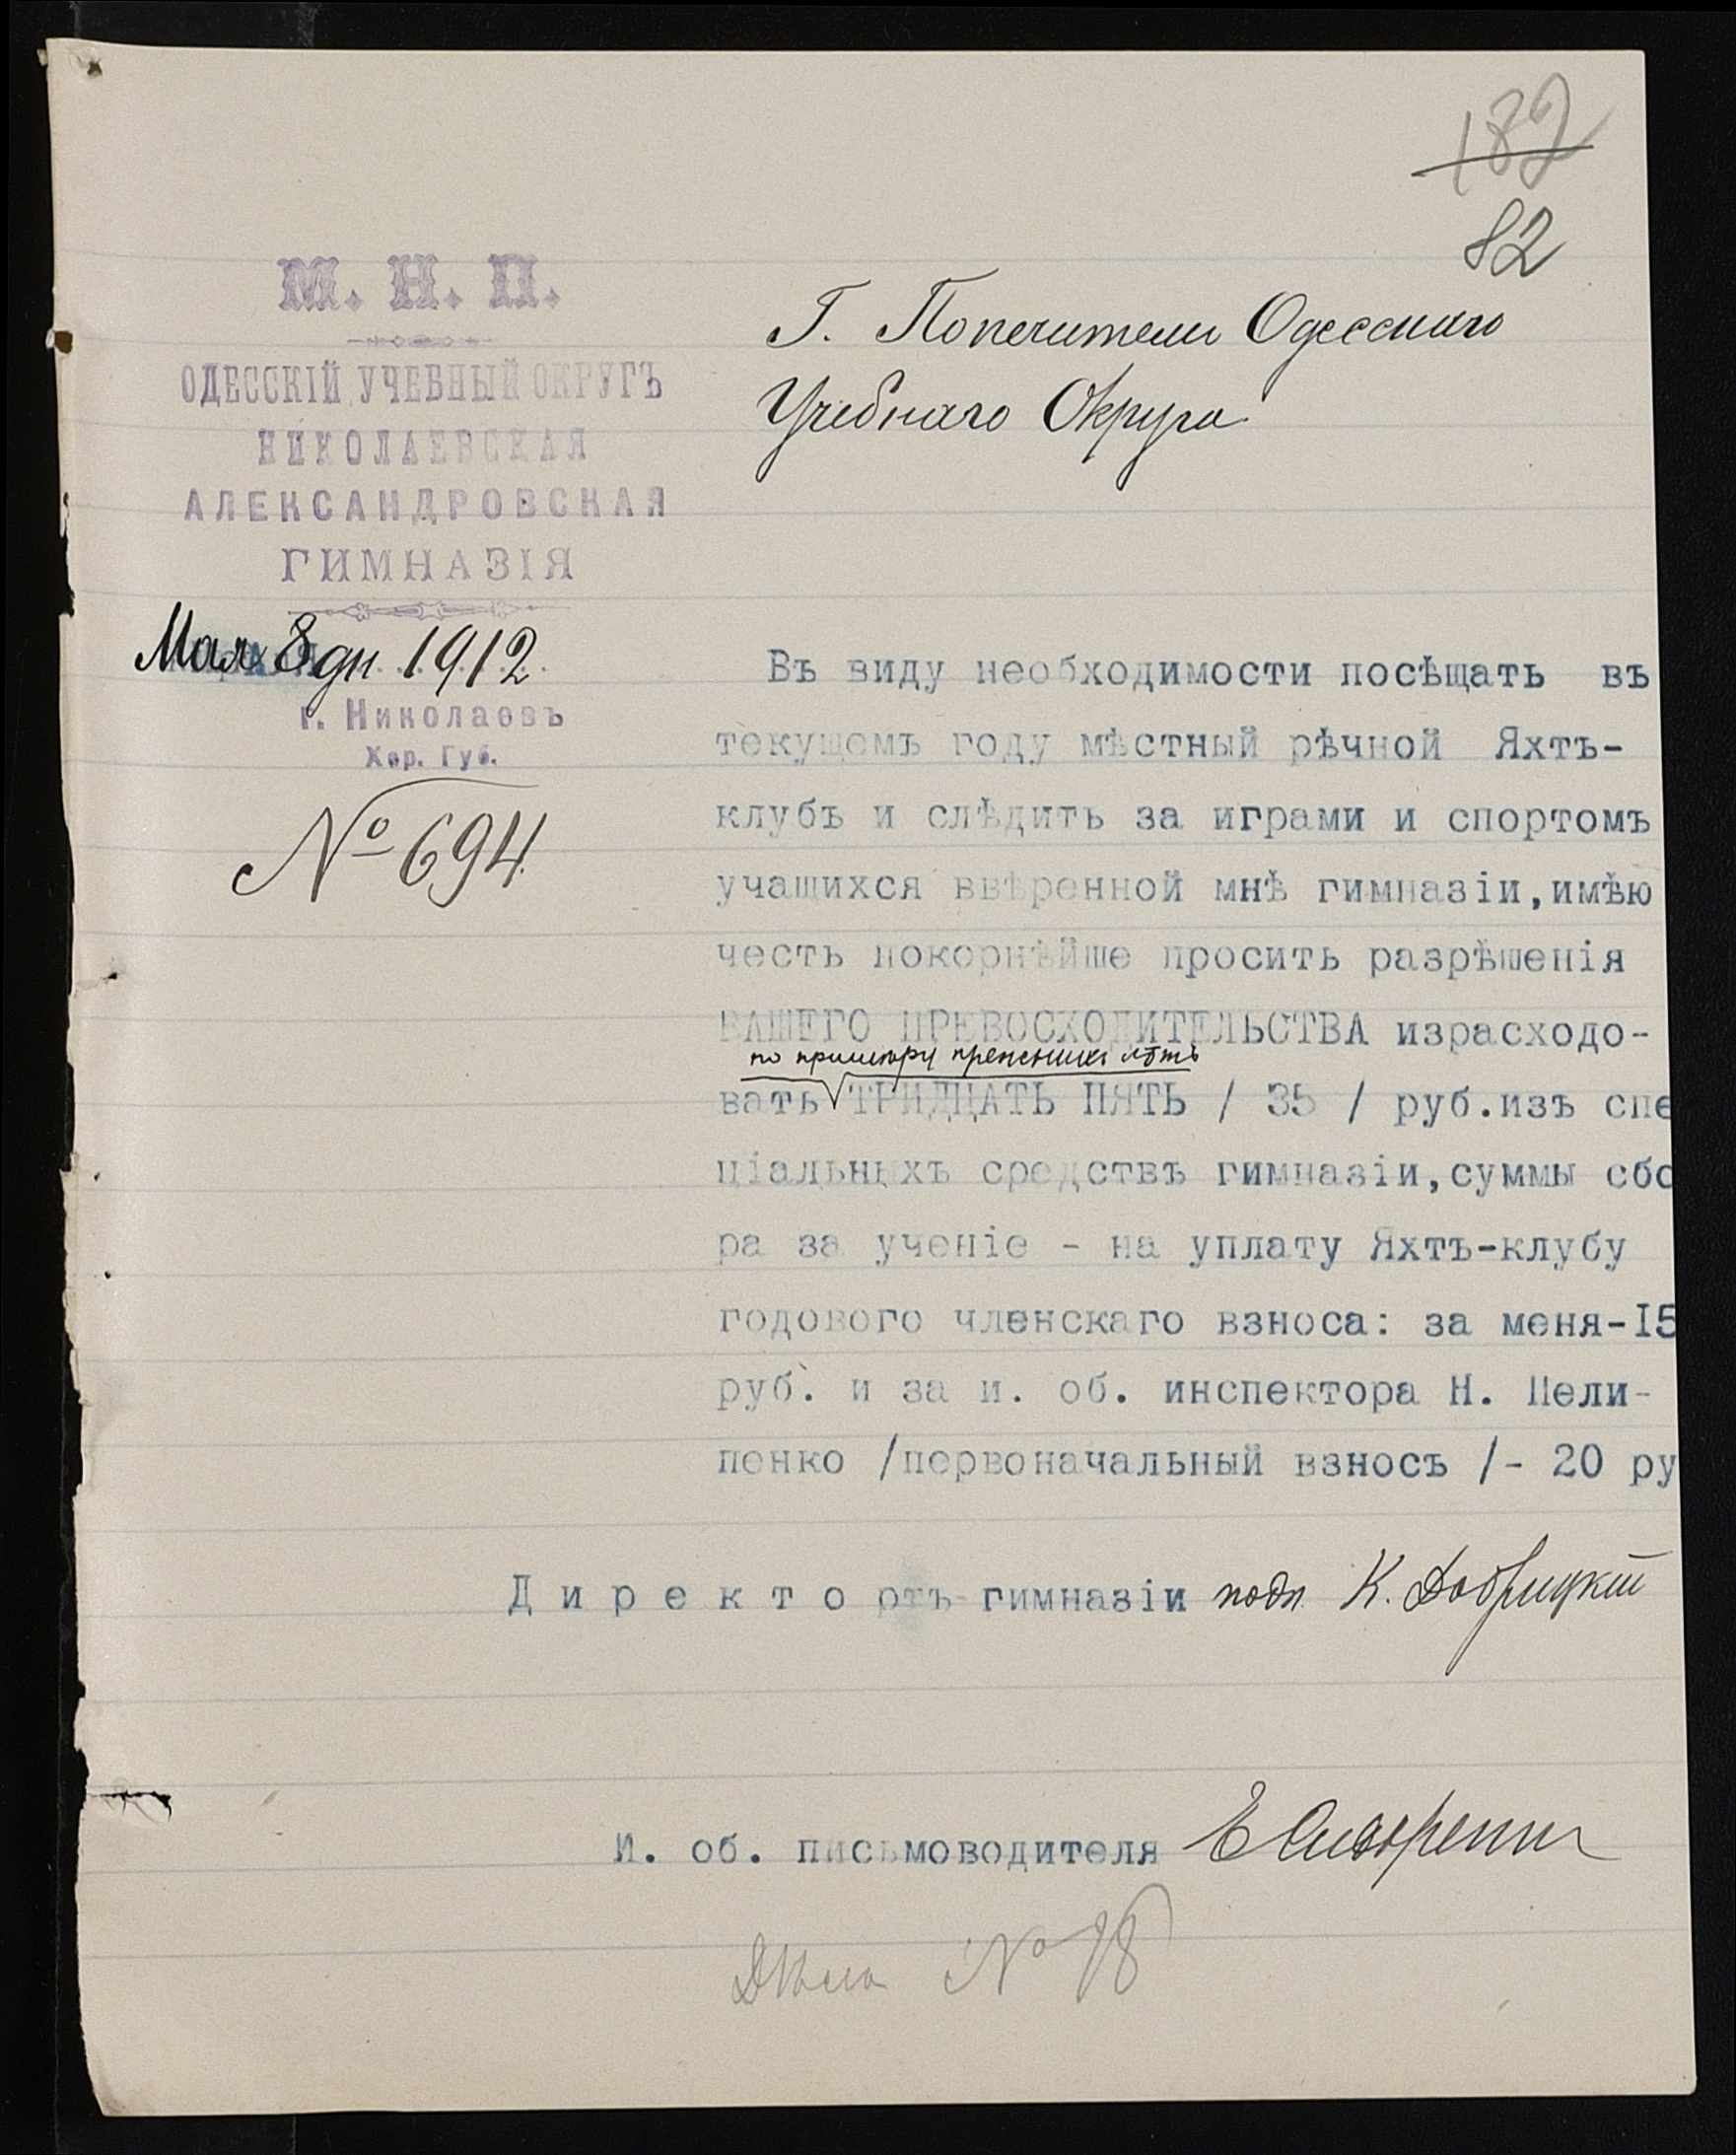 182
82
М. Н. П.
ОДЕССКІЙ УЧЕБНЫЙ ОКРУГЪ
НИКОЛАЕВСКАЯ
АЛЕКСАНДРОВСКАЯ
ГИМНАЗІЯ
Мая 8 дн 1912
г. Николаевъ
Хер. Губ.
№ 694.
Г. Попечителю Одесскаго
Учебнаго Округа
Въ виду необходимости посѣщать въ
текущемъ году мѣстный рѣчной Яхтъ-
клубъ и слѣдить за играми и спортомъ
учащихся ввѣренной мнѣ гимназіи,имѣю
честь покорнѣйше просить разрѣшенія
ВАШЕГО ПРЕВОСХОДИТЕЛЬСТВА израсходо-
по примѣру прежнихъ лѣтъ
вать ТРИДЦАТЬ ПЯТЬ / 35 / руб.изъ спе
ціальныхъ средствъ гимназіи,суммы сбо
ра за ученіе - на уплату Яхтъ-клубу
годового членскаго взноса: за меня-I5
руб. и за и. об. инспектора Н. Пели-
пенко /первоначальный взносъ /- 20 ру
Директоръ гимназіи подп. К. Добрицкій
И. об. письмоводителя Е
Дѣло №